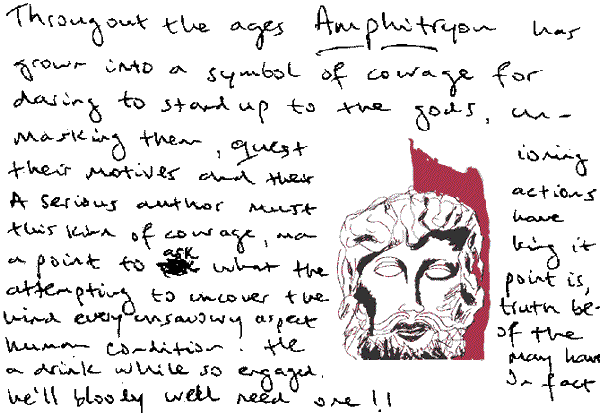 Througout the ages Amphitryon has
grown into a symbol of courage for
daring to stand up to the gods, un-
masking them, quest ioning
their motives and their actions
A serious author must have
this kind of courage, ma king it
a point to ask what the point is,
attempting to uncover the truth be-
hind every unsavoury aspect of the
human condition. He may have
a drink while so engaged. In fact
he'll bloody well need one!!